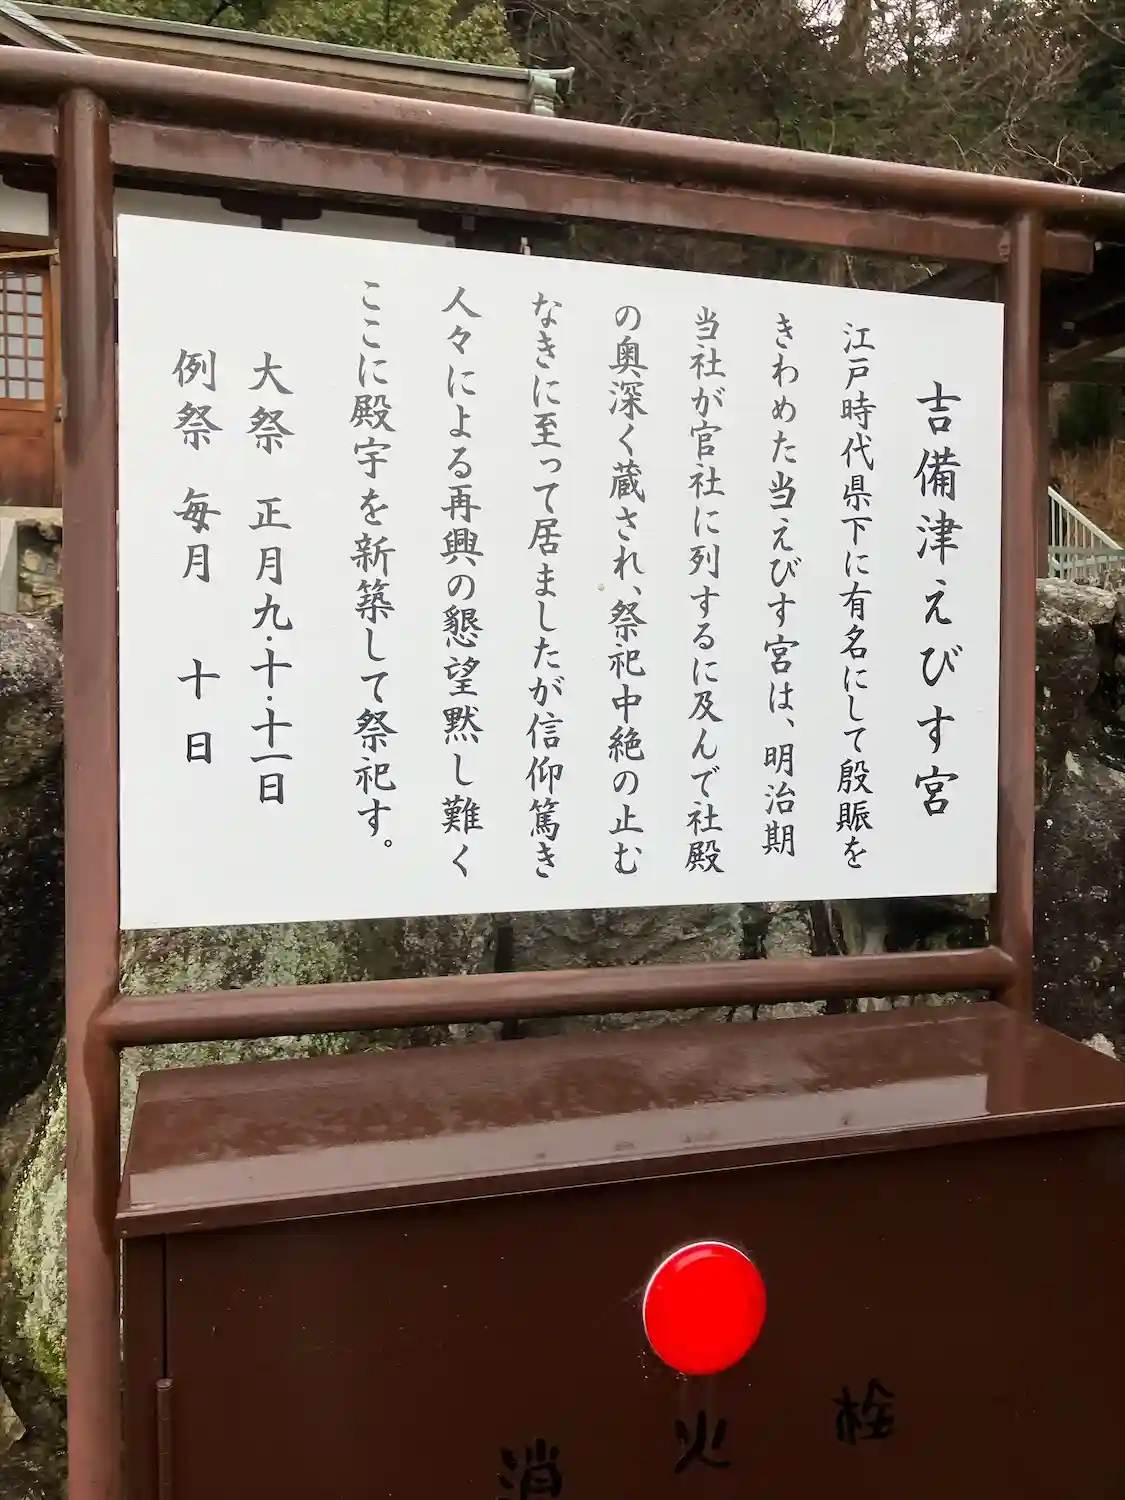 吉備津えびす宮
江戸時代県下に有名にして殷賑を
きわめた当えびす宮は、明治期
当社が官社に列するに及んで社殿
の奥深く蔵され、祭祀中絶の止む
なきに至って居ましたが信仰篤き
人々による再興の懇望黙し難く
ここに殿宇を新築して祭祀す。
大祭 正月九・十・十一日
例祭 毎月 十日
消火栓